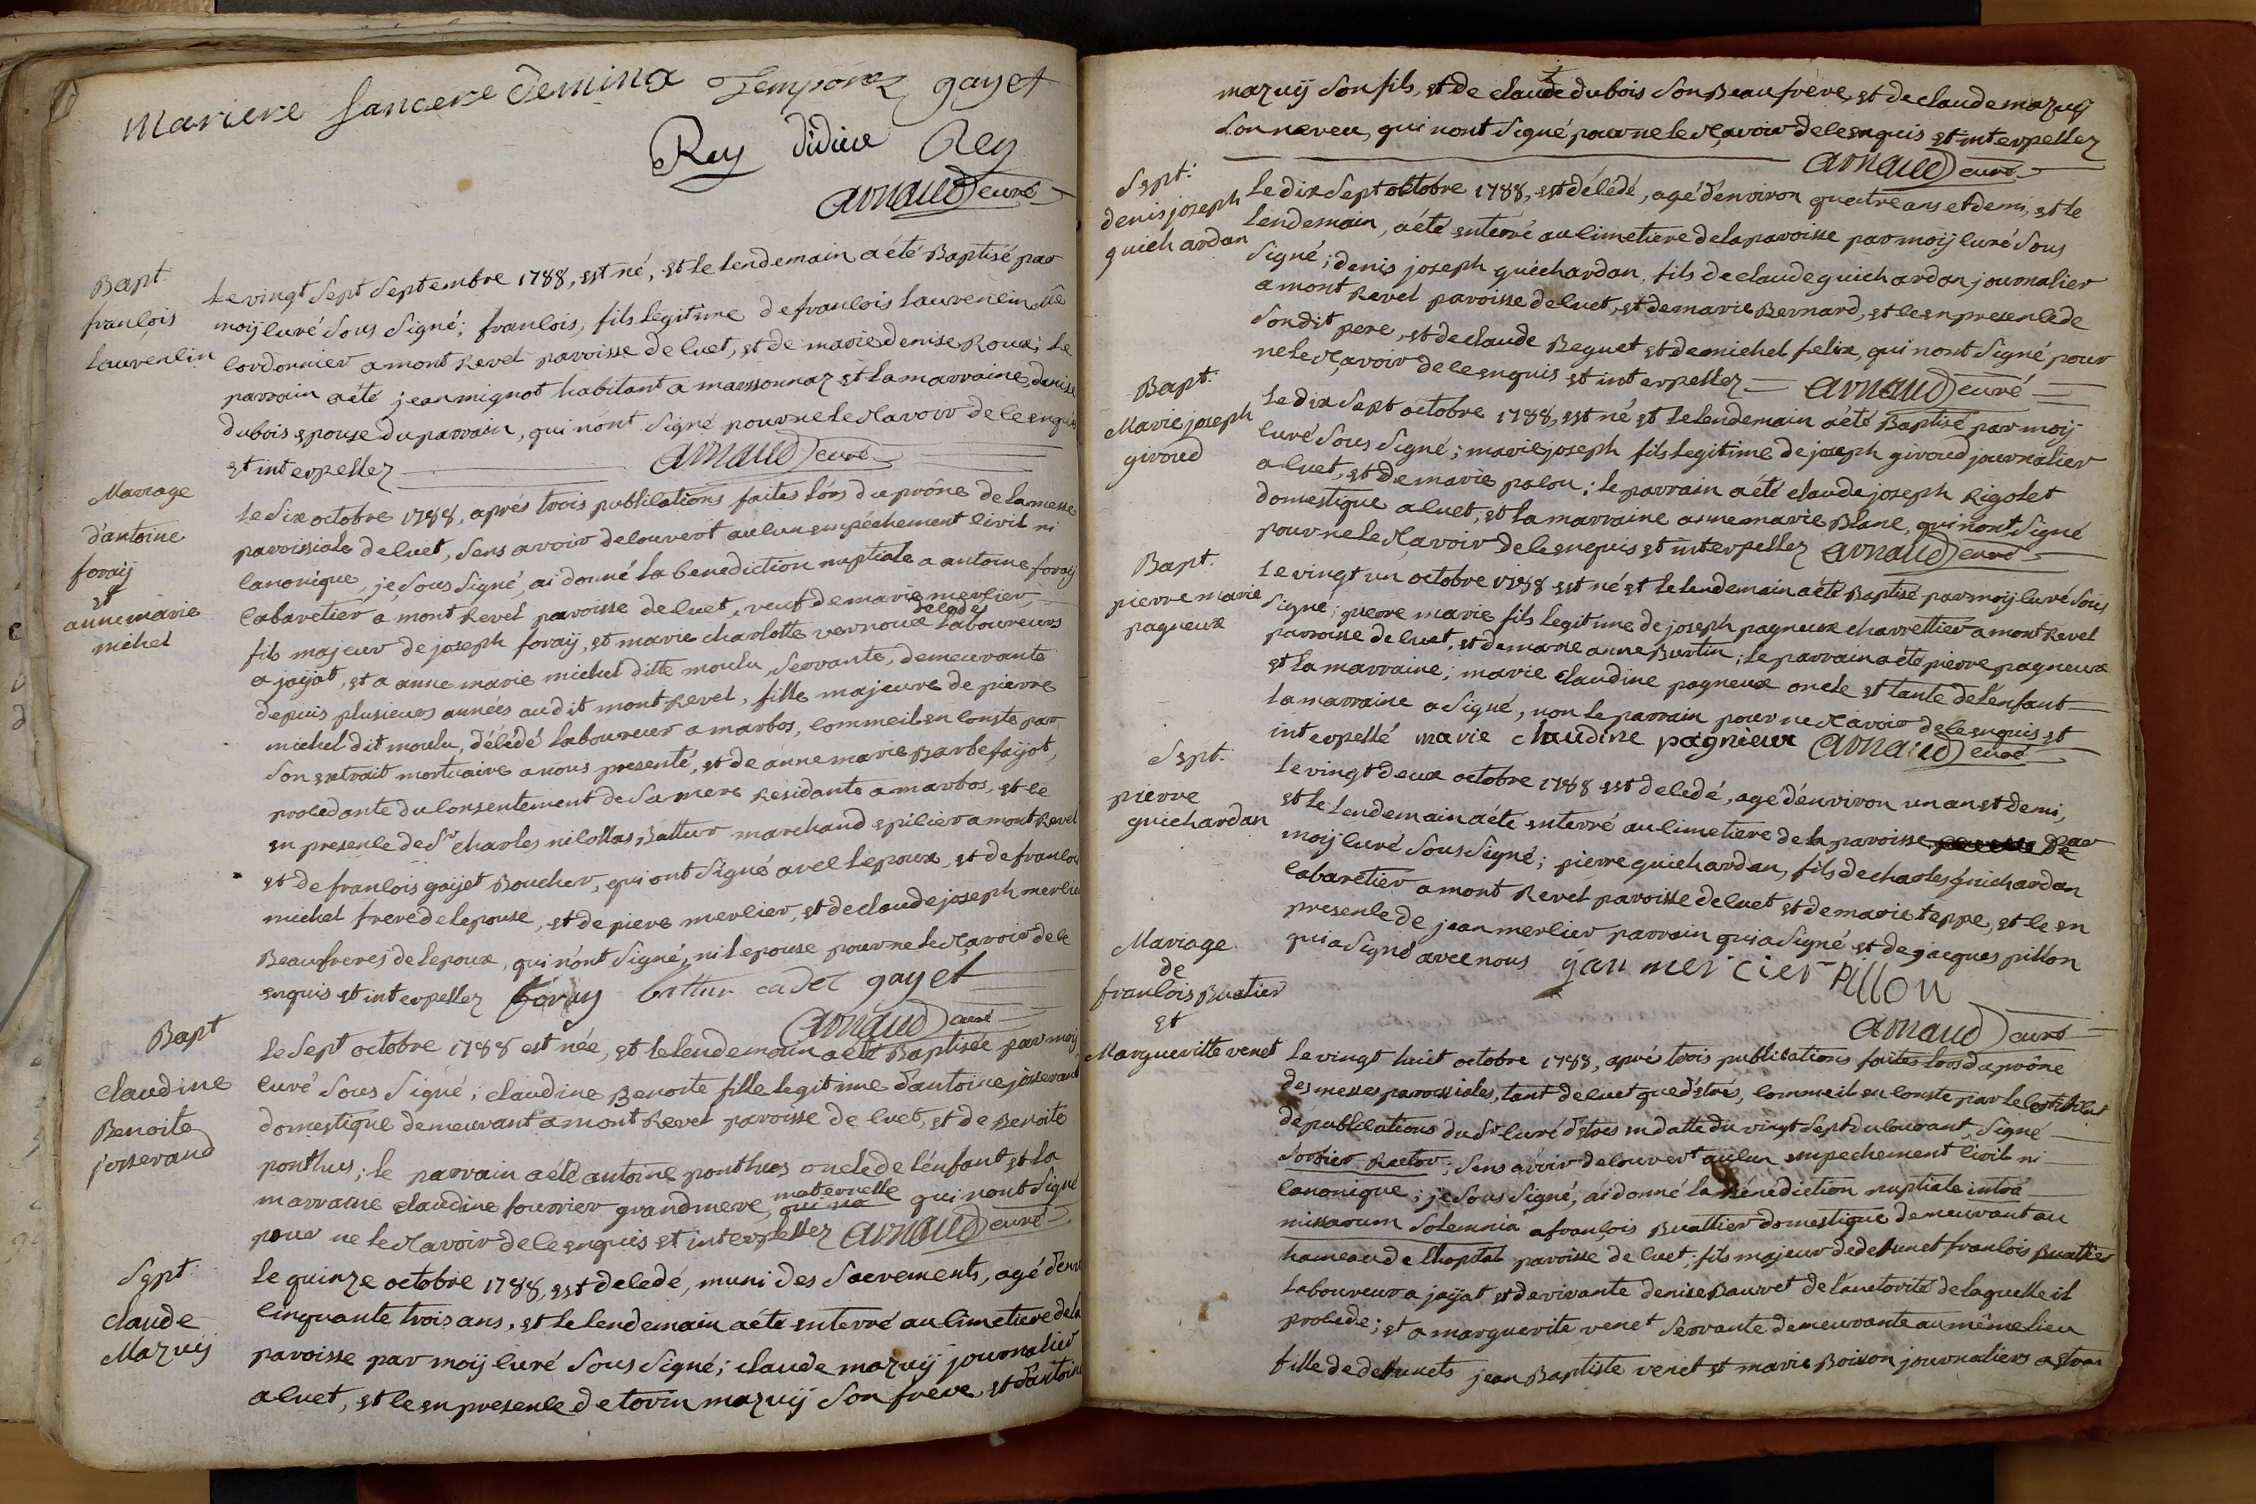 Mariere Sancere Deming Temporez gayet
Rey didier Rey
arnaud curé
Bapt.
françois
laurencin
Le vingt sept septembre 1788, est né, et le lendemain a été Baptisé par
moÿ curé sous signé; françois, fils legitime de françois laurencin mtre
cordonnier a mont Revel paroisse de cuet, et de marie denise Roux; le
parrain a été jean mignot habitant a marsonnaz et la marraine denise
dubois epouse du parrain, qui n'ont signé pour ne le sçavoir de ce enquis
et interpellez arnaud curé
Mariage
d'antoine
foraÿ
et
anne marie
michel
Le six octobre 1788, aprés trois publications faites lórs du prône de la messe
paroissiale de cuet, sens avoir decouvert aucun empéchement civil ni
canonique, je sous signé, ai donné la benediction nuptiale a antoine foraÿ
cabaretier a mont Revel paroisse de cuet, veuf de marie merlier,
fils majeur de joseph foraÿ, et marie charlotte vernoux decedés laboureurs
a jaÿat, et a anne marie michel ditte moulu, servante, demeurante
depuis plusieurs années audit mont Revel, fille majeure de pierre
michel dit moulu, décédé laboureur a marbos, comme il en conste par
son extrait mortuaire a nous presenté, et de anne marie Barbe faÿot,
procedante du consentement de sa mere Residante a marbos, et ce
en presence de Sr charles nicollas, Battur marchand epicier a mont Revel
et de françois gaÿet Boucher, qui ont signé avec l'epoux, et de françois
michel frere de l'epouse, et de piere merlier, et de claude joseph merlier
Beaufreres de l'epoux, qui n'ont signé, ni l'epouse pour ne le sçavoir de ce
enquis et interpellez foray battur cadet gayet
arnaud curé
Bapt
claudine
Benoite
josserand
Le sept octobre 1788 est née, et le lendemain a été Baptisée par moÿ
curé sous signé; claudine Benoite fille legitime d'antoine josserand
domestique demeurant a mont Revel paroisse de cuet, et de Benoite
ponthus; le parrain a été antoine ponthus oncle de l'enfant et la
marraine claudine fourrier grandmere, maternelle qui n'ont signé
pour ne le sçavoir de ce enquis et interpellez arnaud curé
Sept.
claude
Mazuÿ
Le quinze octobre 1788, est decedé, muni des sacrements, agé d'env
cinquante trois ans, et le lendemain a été enterré au cimetiere de la
paroisse par moÿ curé sous signé; claude mazuÿ journalier
a cuet, et ce en presence de torin mazuÿ son frere, et d'antoine
mazuÿ son fils, et de claude dubois son Beaufrere, et de claude mazuÿ
son neveu, qui n'ont signé pour ne le sçavoir de ce enquis et interpellez
arnaud curé
Sept.
denis joseph
guichardan
Le dix sept octobre 1788, est décédé, agé d'environ quatre ans et demi, et le
lendemain, a été enterré au cimetiere de la paroisse par moÿ curé sous
signé; denis joseph guichardan, fils de claude guichardan journalier
a mont Revel paroisse de cuet, et de marie Bernard, et ce en presence de
son dit pere, et de claude Beguet et de michel felix, qui n'ont signé pour
ne le sçavoir de ce enquis et interpellez arnaud curé
Bapt.
Marie joseph
giroud
Le dix sept octobre 1788, est né et le lendemain a été Baptisé par moÿ
curé sous signé; marie joseph fils legitime de joseph giroud journalier
a cuet, et de marie palou; le parrain a été claude joseph Rigolet
domestique a cuet, et la marraine anne marie Blanc, qui n'ont signé
pour ne le sçavoir de ce enquis et interpellez arnaud curé
Bapt.
pierre marie
pagneux
Le vingt un octobre 1788 est né et le lendemain a été Baptisé par moÿ curé sous
signé; pierre marie fils legitime de joseph pagneux charrettier a mont Revel
parroisse de cuet, et de marie anne Burtin; le parrain a été pierre pagneux
et la marraine; marie claudine pagneux oncle et tante de l'enfant
la marraine a signé, non le parrain pour ne sçavoir de ce enquis et
interpellé marie claudine pagnieux arnaud curé
Sept.
pierre
guichardan
Le vingt deux octobre 1788 est decedé, agé d'environ un an et demi,
et le lendemain a été enterré au cimetiere de la paroisse par
moÿ curé sous signé; pierre guichardan, fils de charles guichardan
cabaretier a mont Revel paroisse de cuet et de marie teppe, et ce en
presence de jean merlier parrain qui a signé et de jacques pillon
qui a signé avec nous gan mercier Pillon
arnaud curé
Mariage
de
françois Buatier
et
Margueritte venet
Le vingt huit octobre 1788, aprés trois publications faites lors du prône
des messes paroissiales, tant de cuet que d'etrés, comme il en conste par le certificat
de publications du Sr curé d'etres en datte du vingt sept du courant, signé
sorbier Rector; sens avoir decouvert aucun empechement civil ni
canonique; je sous signé, ai donné la Bénédiction nuptiale intrà
missarum solemnia a françois Buattier domestique demeurant au
hameau de l'hopital paroisse de cuet, fils majeur de defunct françois Buattier
laboureur a jaÿat et de vivante denise Bauret de l'autorité de laquelle il
procede; et a marguerite venet servante demeurante au même lieu
fille de defuncts jean Baptiste venet et marie Boison journaliers a etres